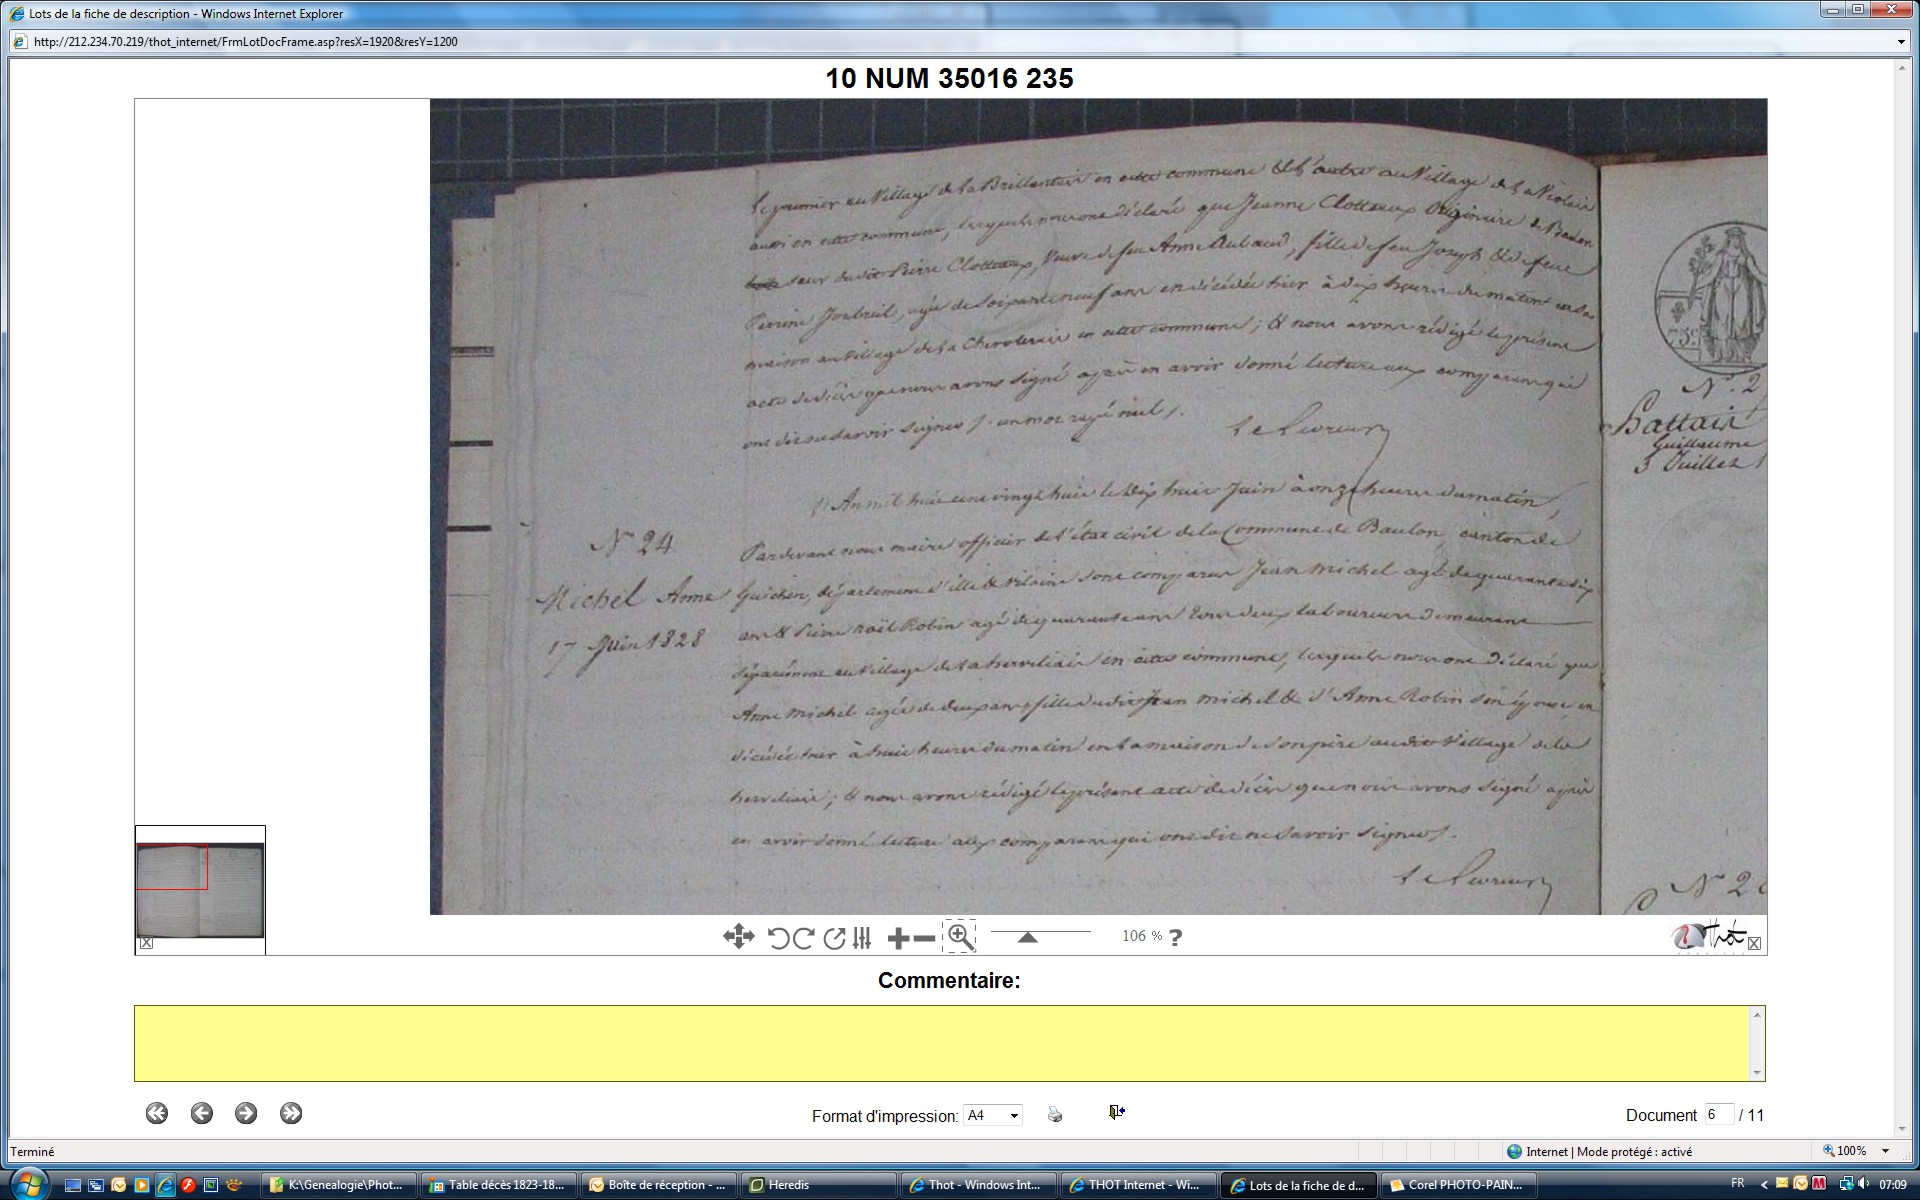 Lots de la fiche de description - Windows Internet Explorer
http://212.234.70.219/thot_internet/FrmLotDocFrame.asp?resX=1920&resY=1200
10 NUM 35016 235
Le premier au Village de la Brillantais en cette commune & l'autre au Village de la
aussi en cette commune, lesquels nous ont déclaré que Jeanne Clotteaux Originaire de Baulon
soeur dudit Pierre Clotteaux, Veuve de feu Anne Aubaud, fille de feu Joseph & de feue
Perrine Joubreil, agée de soixante neuf ans est décédée hier à dix heures du matin en sa
maison au village de la en cette commune ; & nous avons rédigé le présent
acte de décès que nous avons signé après en avoir donné lecture aux comparans qui
ont dit ne savoir signer /. un mot rayé nul /.
An mil huit cent vingt huit le Dix huit Juin à onze heures du matin,
N° 24
Michel Anne
17 Juin 1828
Pardevant nous maire officier de l'état civil de la Commune de Baulon, canton de
Guichen, département d'ille & vilaine sont comparus Jean Michel agé de quarante six
ans & Pierre noël Robin agé de quarante ans tous deux laboureurs demeurant
séparément au Village de la herveliais en cette commune, lesquels nous ont Déclaré que
Anne Michel agée de deux ans, fille dudit Jean michel & d'Anne Robin son épouse, est
décédée hier à huit heures du matin en la maison de son père audit Village de la
herveliais ; & nous avons rédigé le présent acte de décès que nous avons signé après
en avoir donné lecture aux comparans qui ont dit ne savoir signer /.
75c
N° 2
Battais
Guillaume
3 Juillet 1
N° 2
106 % ?
Thot
Commentaire:
Format d'impression: A4
Document 6 / 11
Terminé
Internet | Mode protégé : activé
100%
K:\Genealogie\Phot...
Table décès 1823-18...
Boîte de réception - ...
Heredis
Thot - Windows Int...
THOT Internet - Wi...
Lots de la fiche de d...
Corel PHOTO-PAIN...
FR
07:09